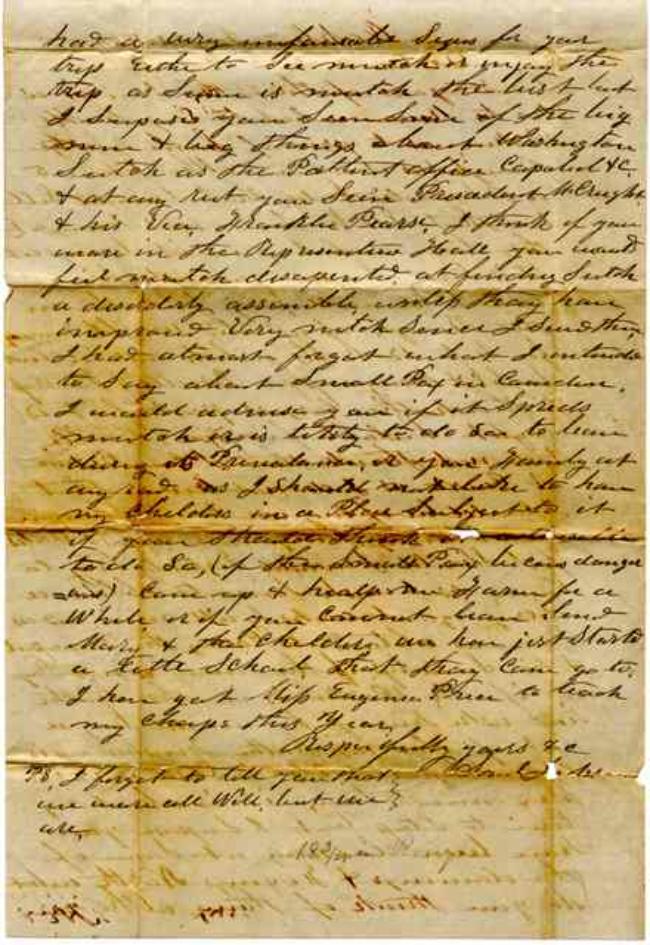 had a very unfavorable Seson for your
trip Eithe to See mutch or injoy the
trip as Seson is mutch the best but
I Suposes you Seen Some of the big
men & big things about Washington
Sutch as the Pattent office Capatol &C
& at any rate you Seen President
& his Vice, Franklin Pearse, I think if you
ware in the Representive Hall you would
feel mutch disapented at finding Sutch
a disorderly assemble, unless thay have
improved Very mutch Sence I Seed them,
I had almost forgot what I intended
to Say about Small Pox in Camden,
I would advise you if it Spreds
mutch or is likly to do So to leave
during its Prevalence, or your Family at
any as I Should not like to have
my Childern in a Place Subject to it
if you Should think it advisable
to do So, (if the Small Pox becoms danger
=ous) Come up & help me Farm for a
While or if you Cannot leave Send
Mary & the Childern we have just Started
a Little School that thay Can go to.
I have got Miss Eugenia Price to teach
my Chaps this Year,
Respecfully yours &c
PS, I forgot to tell you that
we ware all Well, but we
are,